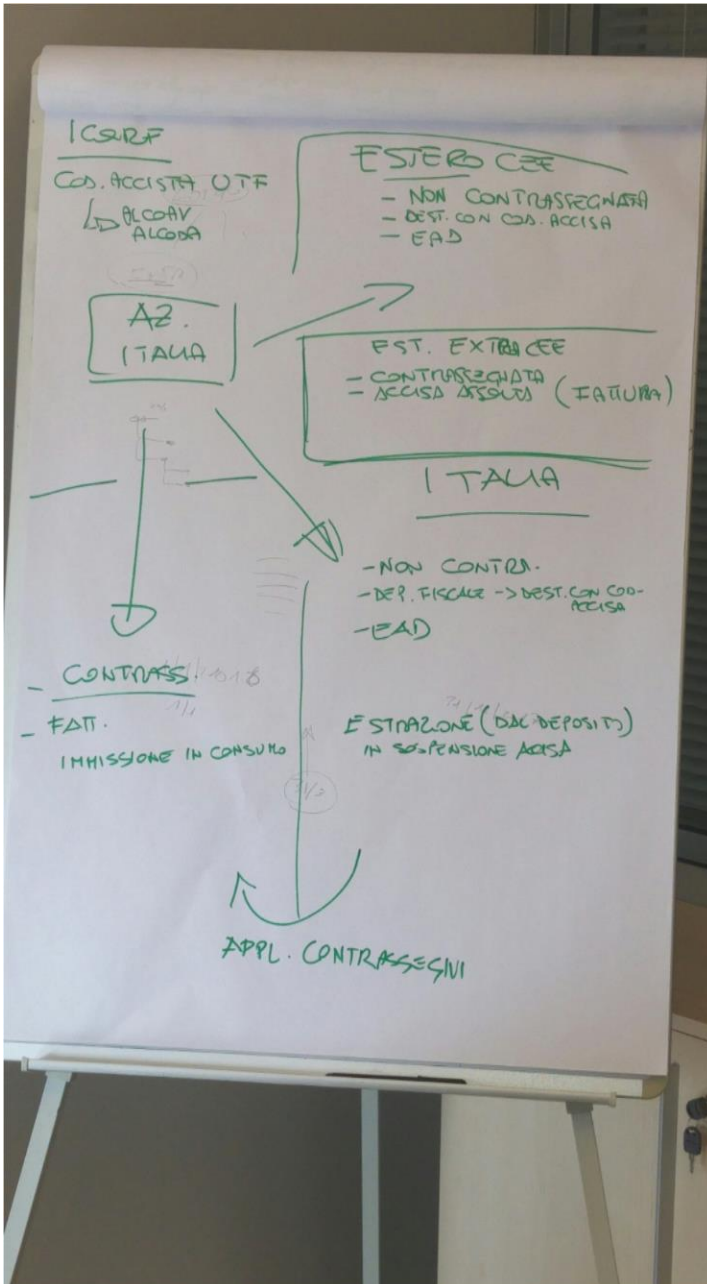 ICQRF
COD. ACCISTA UTF
ALCOAV
ALCODA
ESTERO CEE
- NON CONTRASSEGNATA
- DEST. CON COD. ACCISA
- EAD
AZ.
ITALIA
EST. EXTRA CEE
- CONTRASSEGNATA
- ACCISA ASSOLTA (FATTURA)
ITALIA
- NON CONTRA.
- DEP. FISCALE -> DEST. CON COD-
ACCISA
- EAD
- CONTRASS.
- FATT.
IMMISSIONE IN CONSUMO
ESTRAZIONE (DAL DEPOSITO)
IN SOSPENSIONE ACCISA
APPL. CONTRASSEGNI